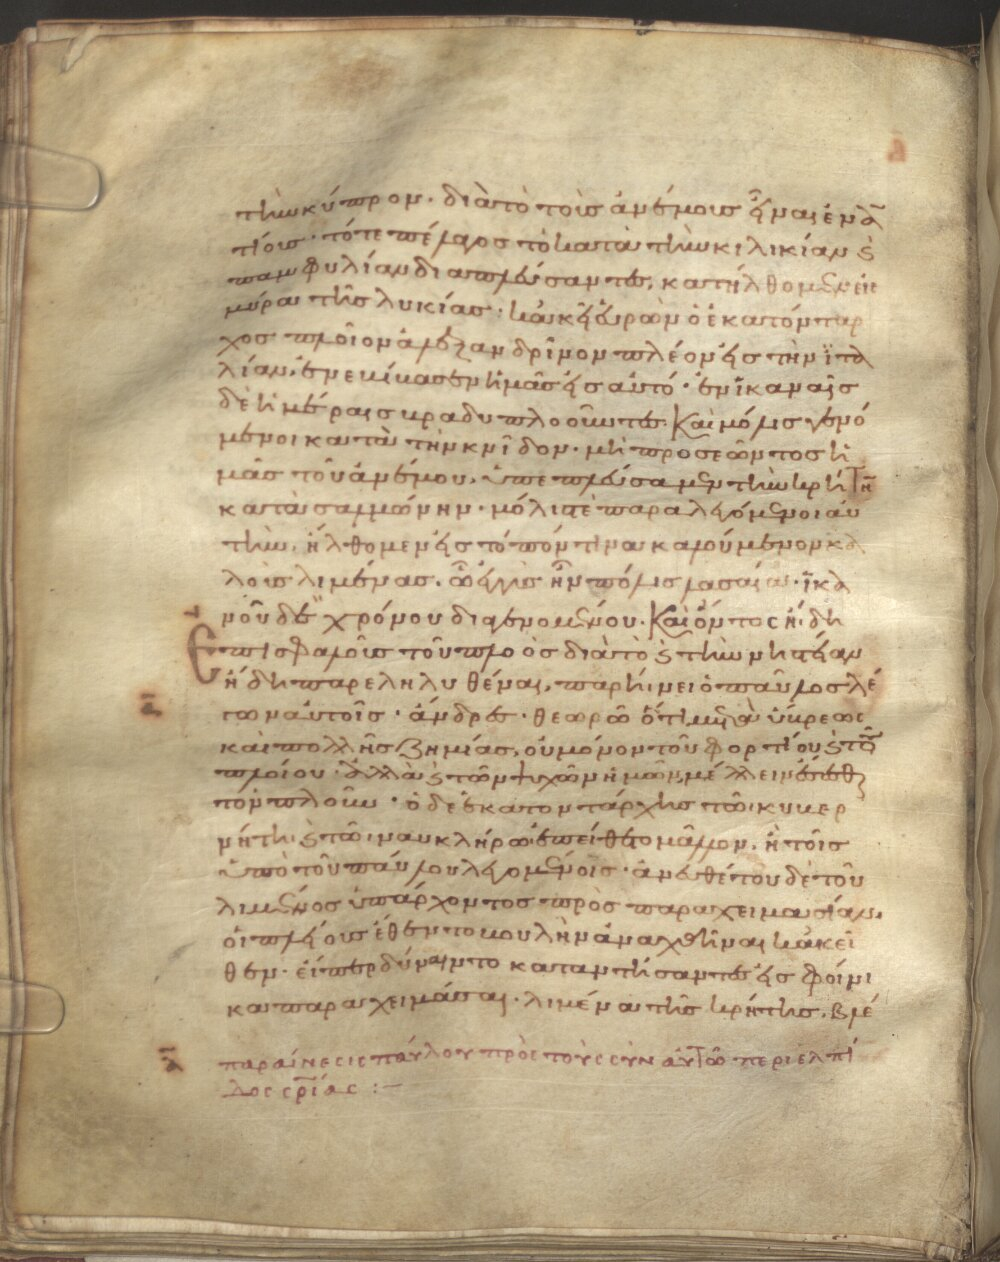 τὴν κύπρον· διὰ τὸ τοὺς ἀνέμους εἶναι ἐναν
τίους· τότε πέλαγος τὸ κατὰ τὴν κιλικίαν ϗ
παμφυλίαν διαπλεύσαντες, κατήλθομεν εἰς
μύρα τῆς λυκίας· κἀκεῖ εὑρὼν ὁ ἑκατόνταρ
χος πλοῖον ἀλεξανδρῖνον πλέον εἰς τὴν ἰτα
λίαν, ἐνεβίβασεν ἡμᾶς εἰς αὐτό· ἐν ἱκαναῖς
δὲ ἡμέραις βραδυπλοοῦντες. Καὶ μόλις γενό
μενοι κατὰ τὴν κνίδον· μὴ προσεῶντος ἡ
μᾶς τοῦ ἀνέμου, ὑπεπλεύσαμεν τὴν κρήτην
κατὰ σαλμώνην· μόλις τὲ παραλεγόμενοι αὐ
τὴν, ἤλθομεν εἰς τόπον τινα καλούμενον κα
λοὺς λιμένας. ὧ ἐγγὺς ἦν πόλις λασαία· ἱκα
νοῦ δὲ χρόνου διαγενομένου. Καὶ ὄντος ἤδη
ἐπισφαλοῦς τοῦ πλοὸς διὰ τὸ ϗ τὴν νηστείαν
ἤδη παρεληλυθέναι, παρήνει ὁ παῦλος λέ
γων αὐτοῖς· ἄνδρες· θεωρῶ ὅτι μετὰ ὕβρεως
καὶ πολλῆς ζημίας, οὐ μόνον τοῦ φορτίου ϗ τοῦ
πλοίου· ἀλλὰ ϗ τῶν ψυχῶν ἡμῶν, μέλλειν ἔσεσθαι
τὸν πλοῦν· ὁ δὲ ἑκατοντάρχης τῶ κυβερ
νήτη ϗ τῶ ναυκλήρω ἐπείθετο μᾶλλον, ἢ τοῖς
ὑπὸ τοῦ παύλου λεγομένοις· ἀνευθέτου δὲ τοῦ
λιμένος ὑπάρχοντος πρὸς παραχειμασίαν,
οἱ πλείους ἔθεντο βουλὴν ἀναχθῆναι κἀκεῖ
θεν· εἴπερ δύναιντο καταντήσαντες εἰς φοίνι
κα παραχειμάσαι· λιμένα τῆς κρήτης, βλέ
παραίνεσις παύλου πρὸς τοὺς σὺν αὐτῶ περὶ ἐλπί
δος σρίας :–